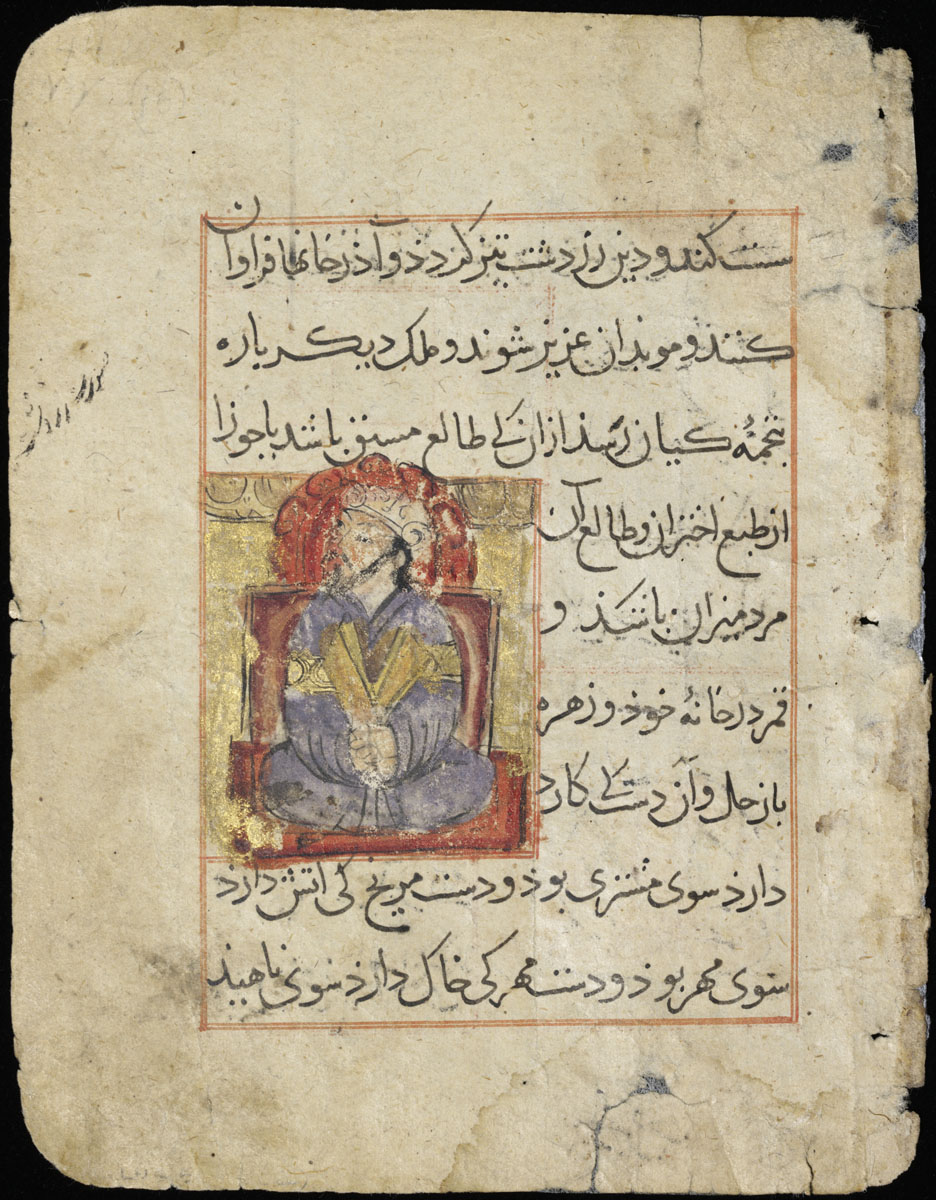 ست کند و دین زردشت تیز کردذ و آذرخانها فراوان
کنند و موبدان عزیز شوند و ملک دیکر باره
بتخمهٔ کیان رسذ ازان کی طالع مستقر باشد با جوزا
از طبع اختران و طالع آن
مرد میزان باشذ و
قمر در خانهٔ خوذ و زهره
با زحل و آن دست کی کارد
دارذ سوی مشتری بوذ و دست مریخ کی اتش دارذ
سوی مهر بوذ و دست مهر کی خاک دارذ سوی ناهید